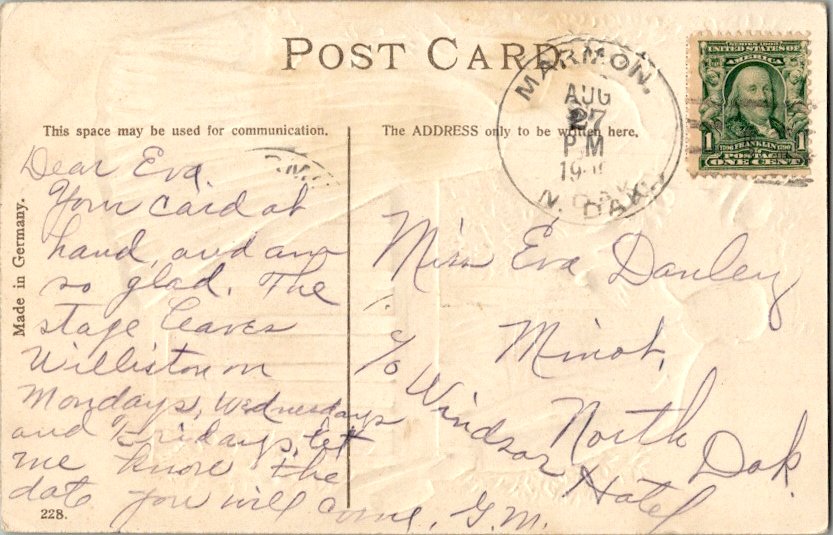 POST CARD
MARMON.
AUG
27
PM
N. DAK.
SERIES 1902
UNITED STATES OF
AMERICA
1 FRANKLIN 1
POSTAGE
ONE CENT
This space may be used for communication.
The ADDRESS only to be written here.
Made in Germany.
Dear Eva
Your card at
hand, and am
so glad. The
stage leaves
Williston on
Mondays, Wednesdays
and Fridays, let
me know the
date you will come, G.M.
Miss Eva Danley
Minot,
North Dak.
c/o Windsor Hotel
228.